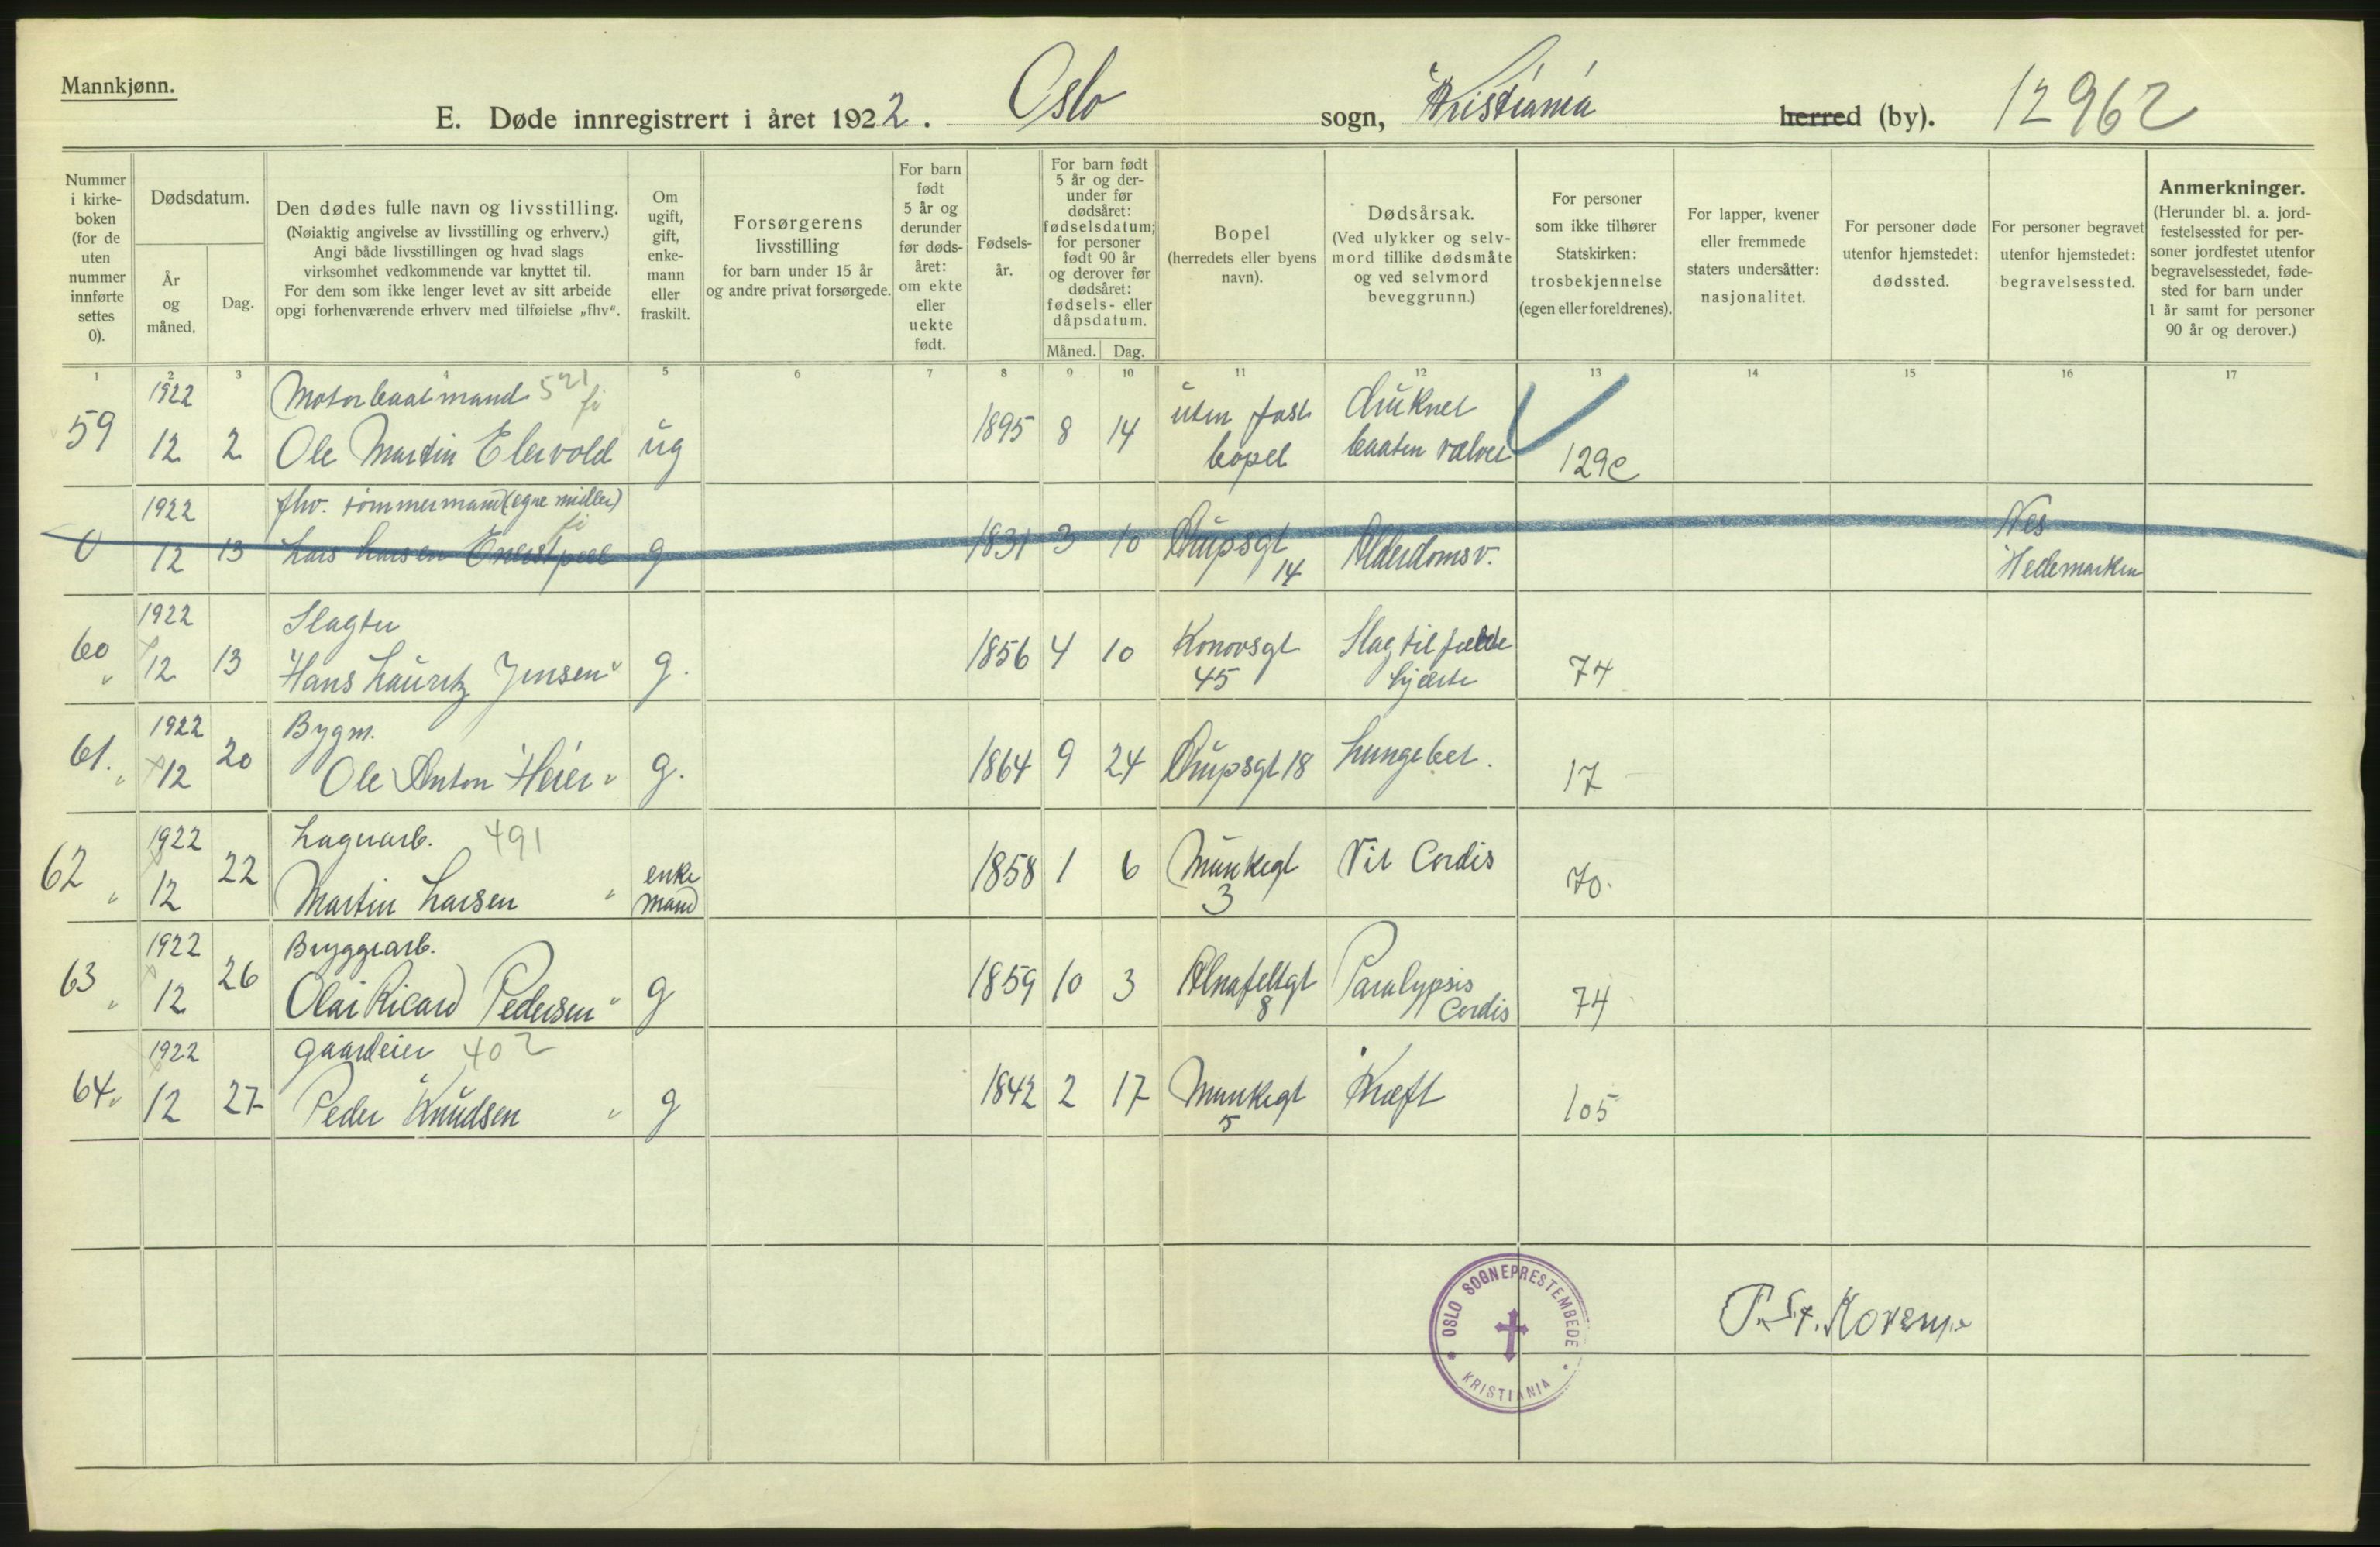 Mannkjønn.
E. Døde innregistrert i året 1922. Oslo sogn, Kristiania herred (by). 12962
Nummer i kirke-boken (for de uten nummer innførte settes 0).
Dødsdatum.
År og måned,
Dag.
Den dødes fulle navn og livsstilling.
(Nøiaktig angivelse av livsstilling og erhverv.)
Angi både livsstillingen og hvad slags
virksomhet vedkommende var knyttet til.
For dem som ikke lenger levet av sitt arbeide
opgi forhenværende erhverv med tilføielse „fhv“.
Om ugift, gift, enke-mann eller fraskilt.
Forsørgerens
livsstilling
for barn under 15 år
og andre privat forsørgede.
For barn født 5 år og derunder før døds-året: om ekte eller uekte født.
Fødsels-år.
For barn født 5 år og der-under før dødsåret: fødselsdatum; for personer født 90 år og derover før dødsåret: fødsels- eller dåpsdatum.
Måned. Dag.
Bopel
(herredets eller byens
navn).
Dødsårsak.
(Ved ulykker og selv-
mord tillike dødsmåte
og ved selvmord
beveggrunn.)
For personer
som ikke tilhører
Statskirken:
trosbekjennelse
(egen eller foreldrenes).
For lapper, kvener
eller fremmede
staters undersåtter:
nasjonalitet.
For personer døde
utenfor hjemstedet:
dødssted.
For personer begravet
utenfor hjemstedet:
begravelsessted.
Anmerkninger.
(Herunder bl. a. jord-
festelsessted for per-
soner jordfestet utenfor
begravelsesstedet, føde-
sted for barn under
1 år samt for personer
90 år og derover.)
1 2 3 4 5 6 7 8 9 10 11 12 13 14 15 16 17
1922 Motorbaatmand 521 fi uten fast druknet
59 12 2 Ole Martin Elervold ug 1895 8 14 bopel baaten vælvet 129c
1922 fhv. tømmermand (egne midler) fi Nes
0 12 13 Lars Larsen g 1831 3 10 Grupsgt 14 Alderdomsv. Hedemarken
1922 Slagter Konowsgt Slagtilfælde
60 " 12 13 Hans Lauritz Jensen " g. 1856 4 10 45 hjerte 74
1922 Bygm.
61. " 12 20 Ole Anton Heier " g. 1864 9 24 Grupsgt 18 Lungebet. 17
1922 Lagerarb. 491
62 " 12 22 Martin Larsen " enke mand 1858 1 6 Munkegt 3 Vit Cordis 70.
1922 Bryggearb.
63 " 12 26 Olai Ricard Pedersen " g 1859 10 3 Alnafeltgt 8 Paralypsis Cordis 74
1922 Gaardeier 402
64. " 12 27 Peder Knudsen " g 1842 2 17 Munkegt 5 Kræft 105
OSLO SOGNEPRESTEMBEDE
KRISTIANIA